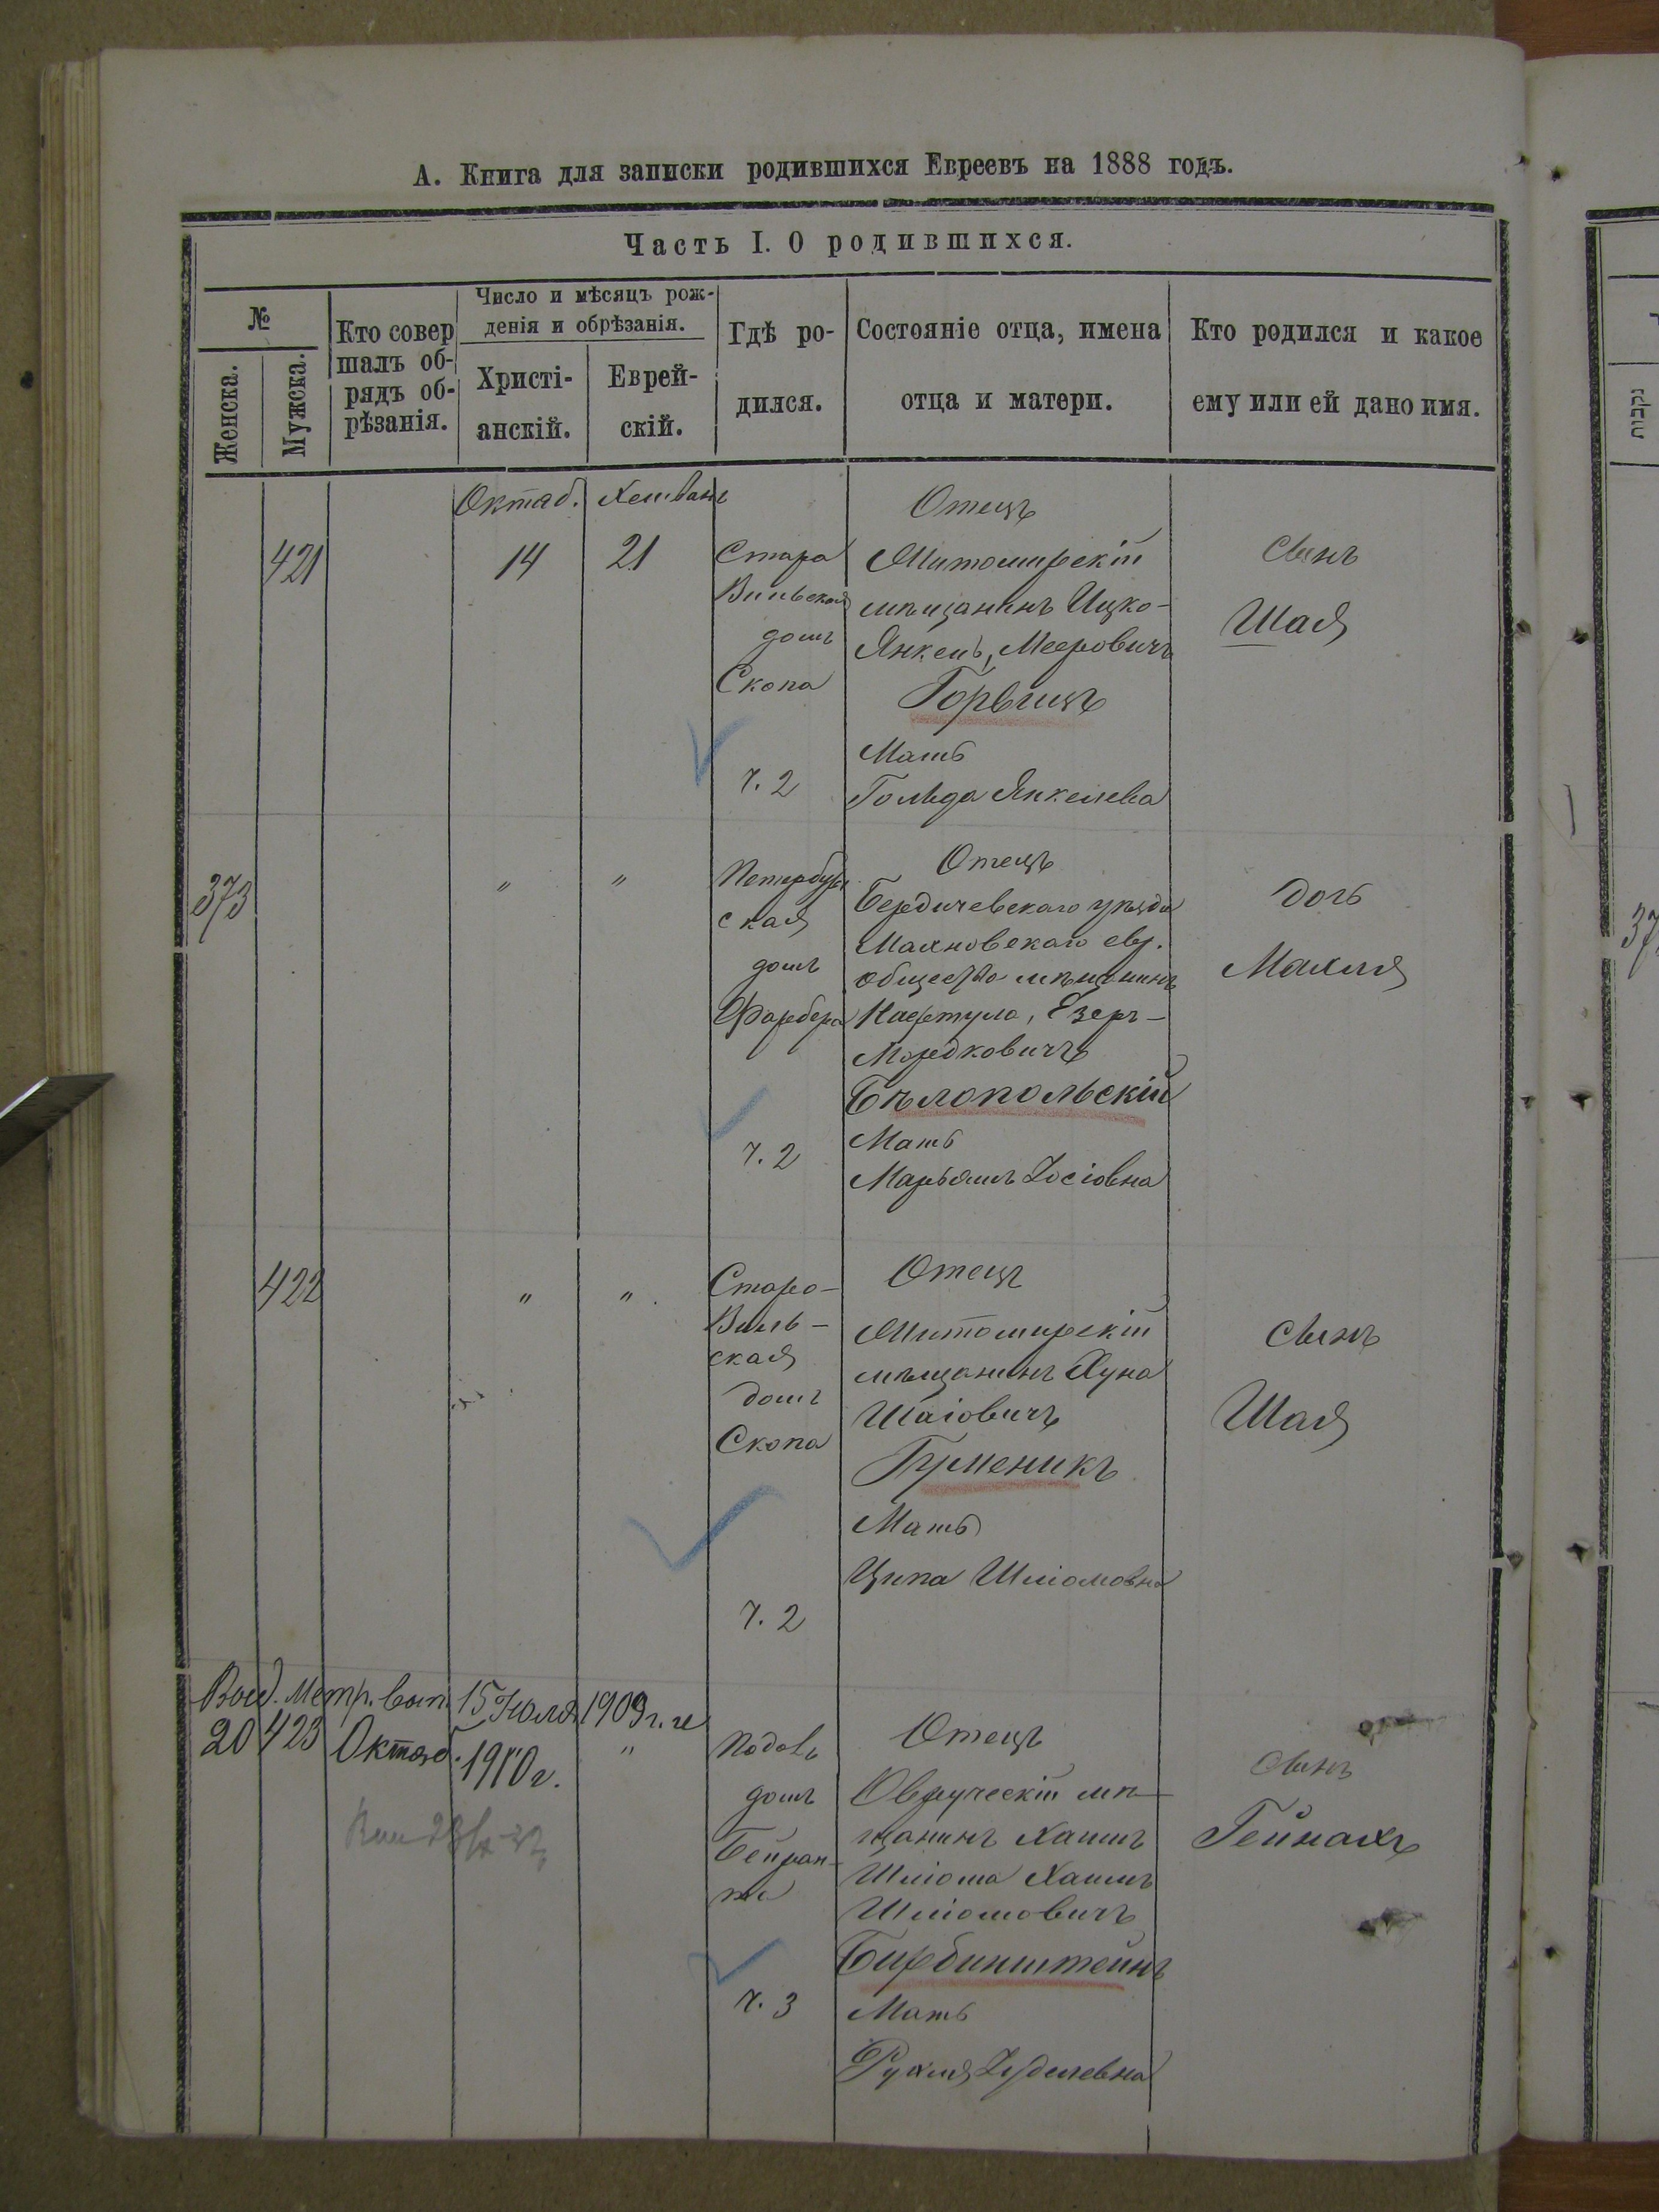 А. Книга для записки родившихся Евреевъ на 1888 годъ.
Часть I. О родившихся.
№
Женска.
Мужска.
Кто совер
шалъ об-
рядъ об-
рѣзанія.
Число и мѣсяцъ рож-
денія и обрѣзанія.
Христі-
анскій.
Еврей-
скій.
Гдѣ ро-
дился.
Состояніе отца, имена
отца и матери.
Кто родился и какое
ему или ей дано имя.
Октяб.
Хешванъ
421
14
21
Старо
Вильская
домъ
Скопа
ч. 2
Отецъ
Житомирскій
мѣщанинъ Ицко-
Янкель, Мееровичъ
Горвицъ
Мать
Гольда Янкелева
Сынъ
Шая
373
"
"
Петербург
ская
домъ
Фарбера
ч. 2
Отецъ
Бердичевскаго уѣзда
Махновскаго евр.
общества мѣщанинъ
Нафтула, Езеръ-
Мордковичъ
Бѣлопольскій
Мать
Марьямъ Іосіовна
дочь
Махля
422
"
"
Старо-
Виль-
ская
домъ
Скопа
ч. 2
Отецъ
Житомирскій
мѣщанинъ Хуна
Шаіовичъ
Гуменикъ
Мать
Ципа Шліомовна
Сынъ
Шая
Выд. метр. вып. 15 Іюля 1909 г. и
20 Октяб. 1910 г.
423
"
"
Подолъ
домъ
ч. 3
Отецъ
Овручскій мѣ-
щанинъ Хаимъ
Шліома Хаимъ
Шліомовичъ
Бирбинштейнъ
Мать
Рухля Іуделевна
Сынъ
Гейнахъ